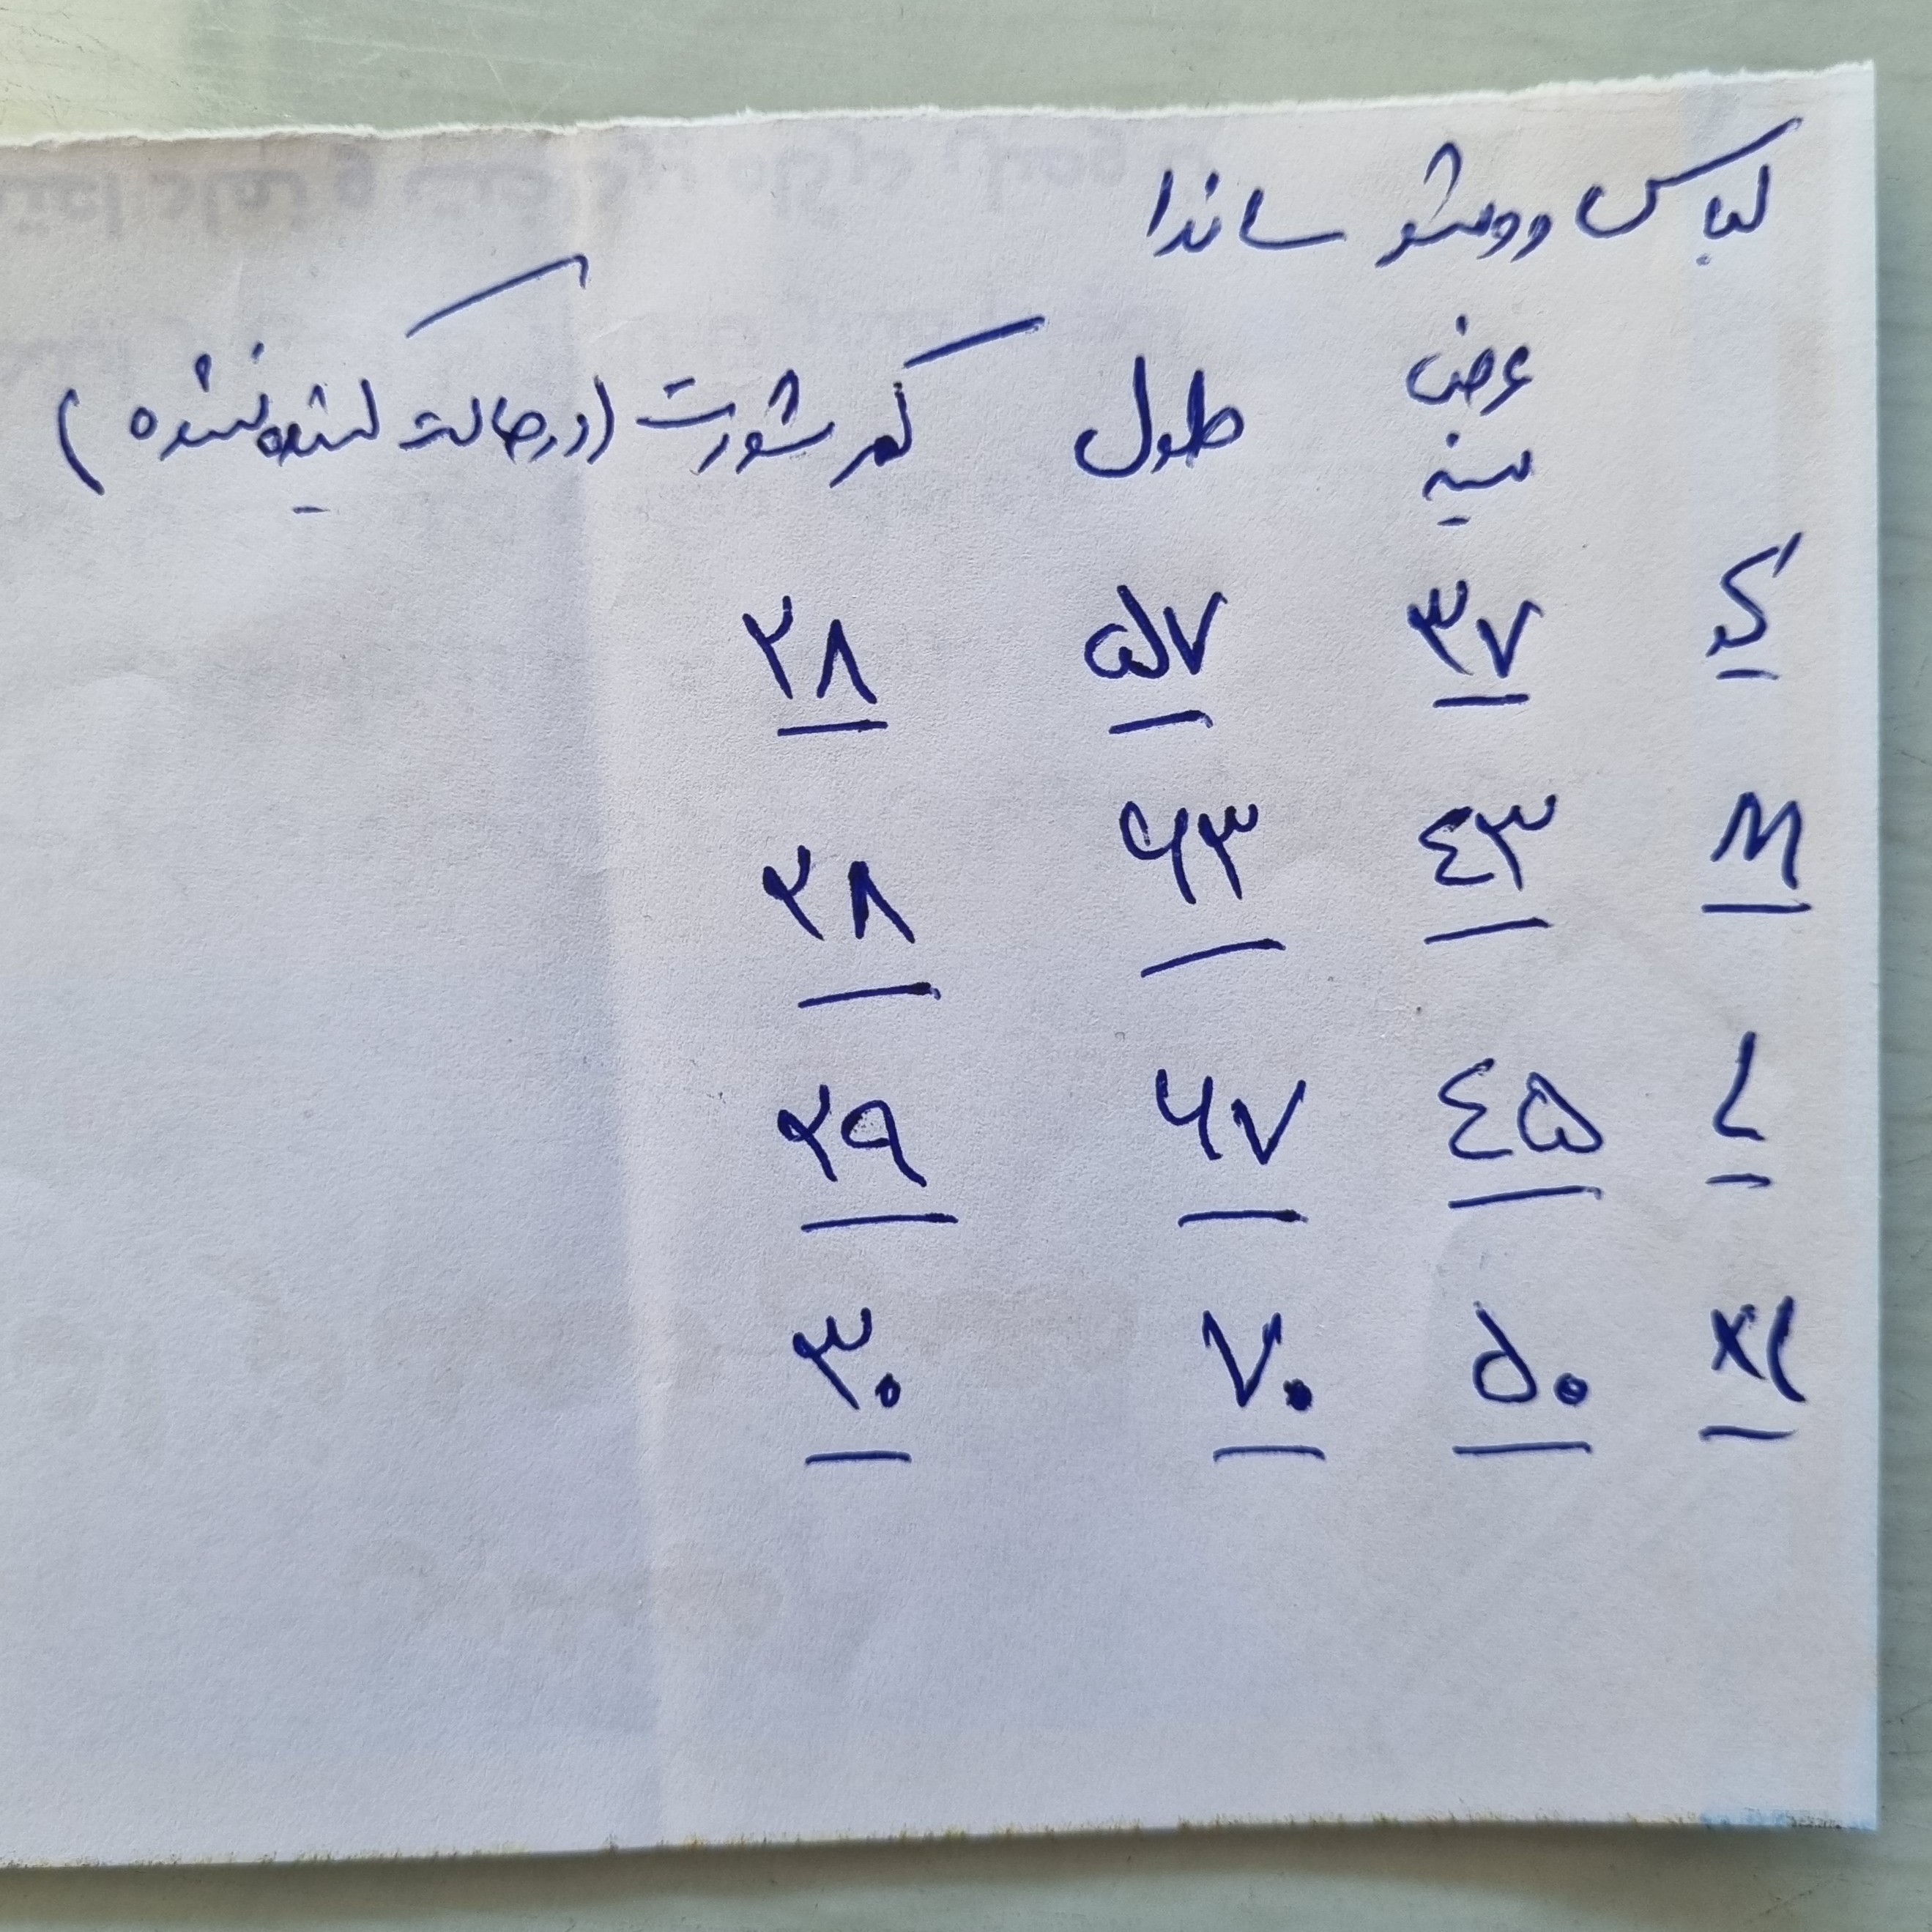 لباس ووشو ساندا
عرض سینه طول کمر شورت (در حالت کشیده نشده)
S ۳۷ ۵۷ ۲۸
M ٤۳ ۶۳ ۲۸
L ٤۵ ۶۷ ۲۹
XL ۵۰ ۷۰ ۳۰